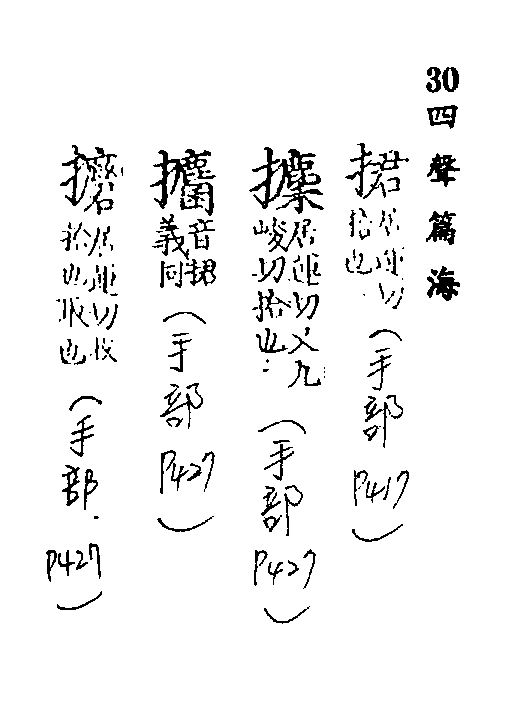 30四聲篇海
捃居運切拾也(手部P417)
攈居運切又九峻切拾也(手部P427)
音捃義同(手部P427)
居運切拾也取也(手部P427)